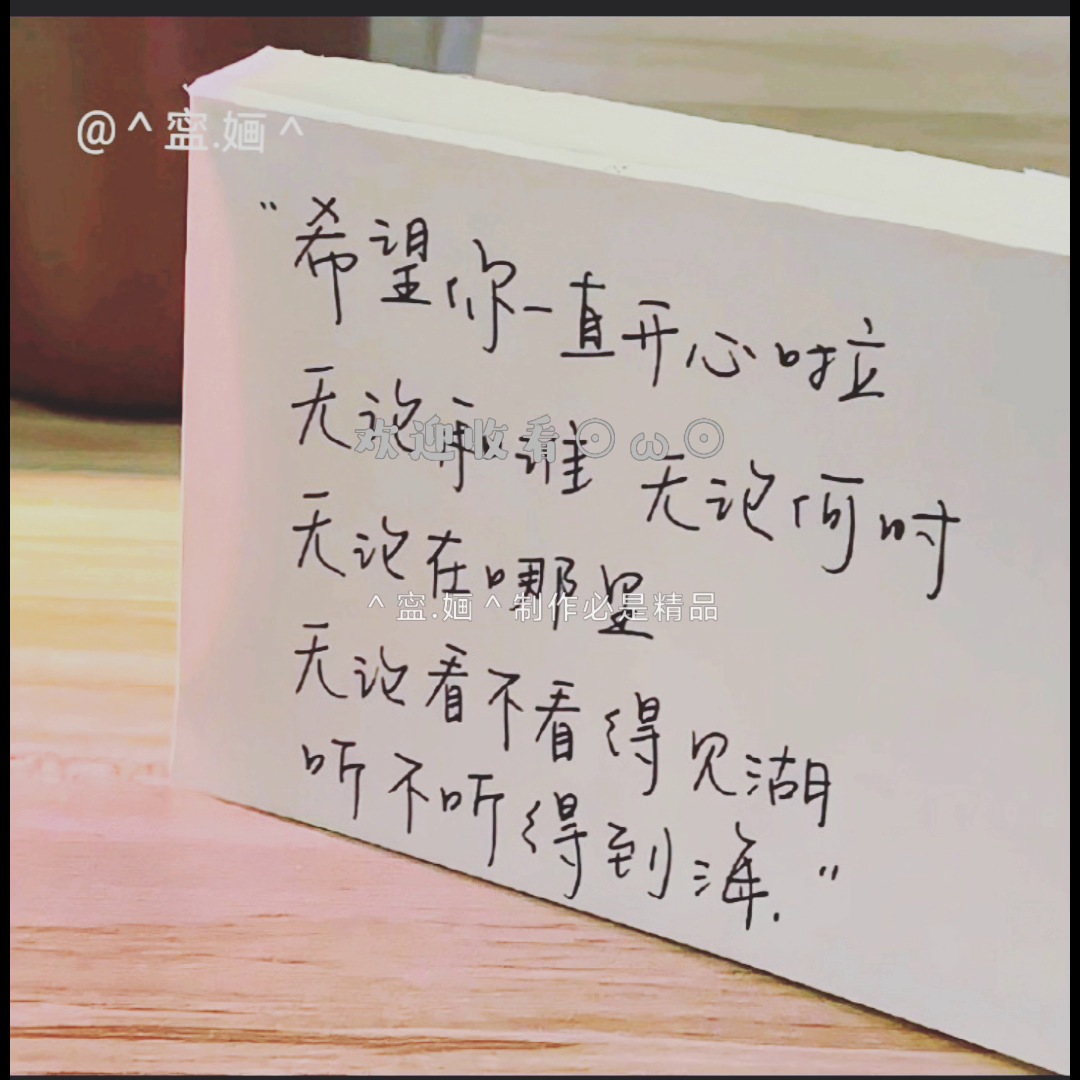 @^寍.婳^
"希望你一直开心啦
无论和谁 无论何时
欢迎收看⊙ω⊙
无论在哪里
^寍.婳^制作必是精品
无论看不看得见湖
听不听得到海."